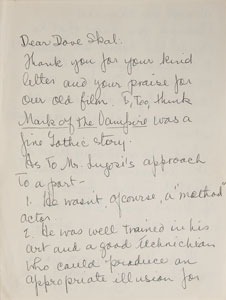 Dear Dave Skal:
Thank you for your kind
letter and your praise for
our old film. I, Too, think
Mark of the Vampire was a
fine Gothic story.
As To Mr. Lugosi's approach
To a part-
1. He wasn't ofcourse, a "method"
actor.
2. He was well Trained in his
art and a good Technician
who could produce an
appropriate illusion for